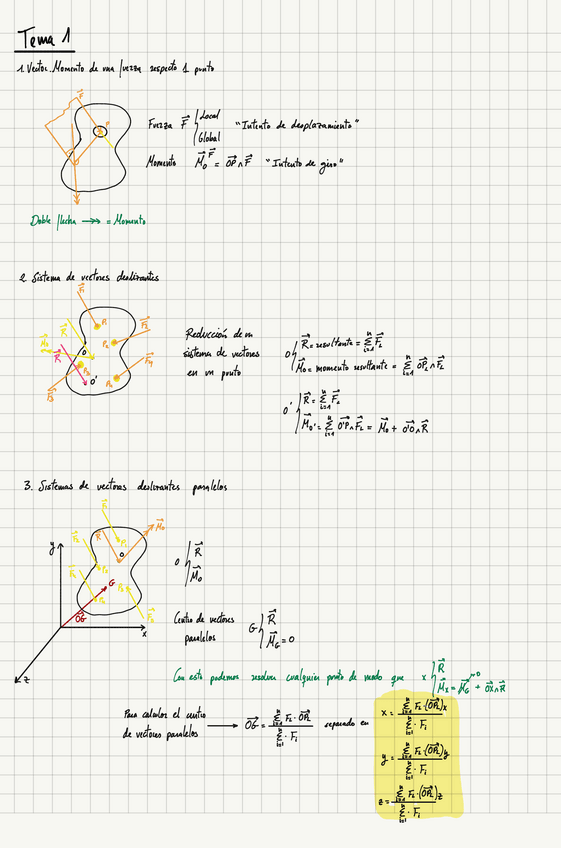 Tema 1
1. Vector Momento de una fuerza respecto 1 punto
F⃗
P
Fuerza F⃗ { Local
Global
"Intento de desplazamiento"
Momento M⃗₀^F⃗ = OP⃗ ∧ F⃗ "Intento de giro"
Doble flecha →→ = Momento
2. Sistema de vectores deslizantes
F⃗₁
P₁
F⃗₂
P₂
R⃗
M⃗₀
O
R⃗
P₃
F⃗₃
O'
F⃗₄
Reducción de un
sistema de vectores
en un punto
O { R⃗ = resultante = Σ(i=1→n) F⃗ᵢ
M⃗₀ = momento resultante = Σ(i=1→n) OP⃗ᵢ ∧ F⃗ᵢ
O' { R⃗ = Σ(i=1→n) F⃗ᵢ
M⃗₀' = Σ(i=1→n) O'P⃗ᵢ ∧ F⃗ᵢ = M⃗₀ + O'O⃗ ∧ R⃗
3. Sistemas de vectores deslizantes paralelos
y
R
M⃗₀
O
G
OG⃗
x
z
O { R⃗
M⃗₀
Centro de vectores
paralelos
G { R⃗
M⃗_G = 0
Con esto podemos resolver cualquier punto de modo que x { R⃗
M⃗ₓ = M⃗_G^(→0) + OX⃗ ∧ R⃗
Para calcular el centro
de vectores paralelos → OG⃗ = Σ(i=1→n) Fᵢ · OP⃗ᵢ / Σ(i=1→n) · Fᵢ separado en
x = Σ(i=1→n) Fᵢ · (OP⃗ᵢ)x / Σ(i=1→n) · Fᵢ
y = Σ(i=1→n) Fᵢ · (OP⃗ᵢ)y / Σ(i=1→n) · Fᵢ
z = Σ(i=1→n) Fᵢ · (OP⃗ᵢ)z / Σ(i=1→n) · Fᵢ